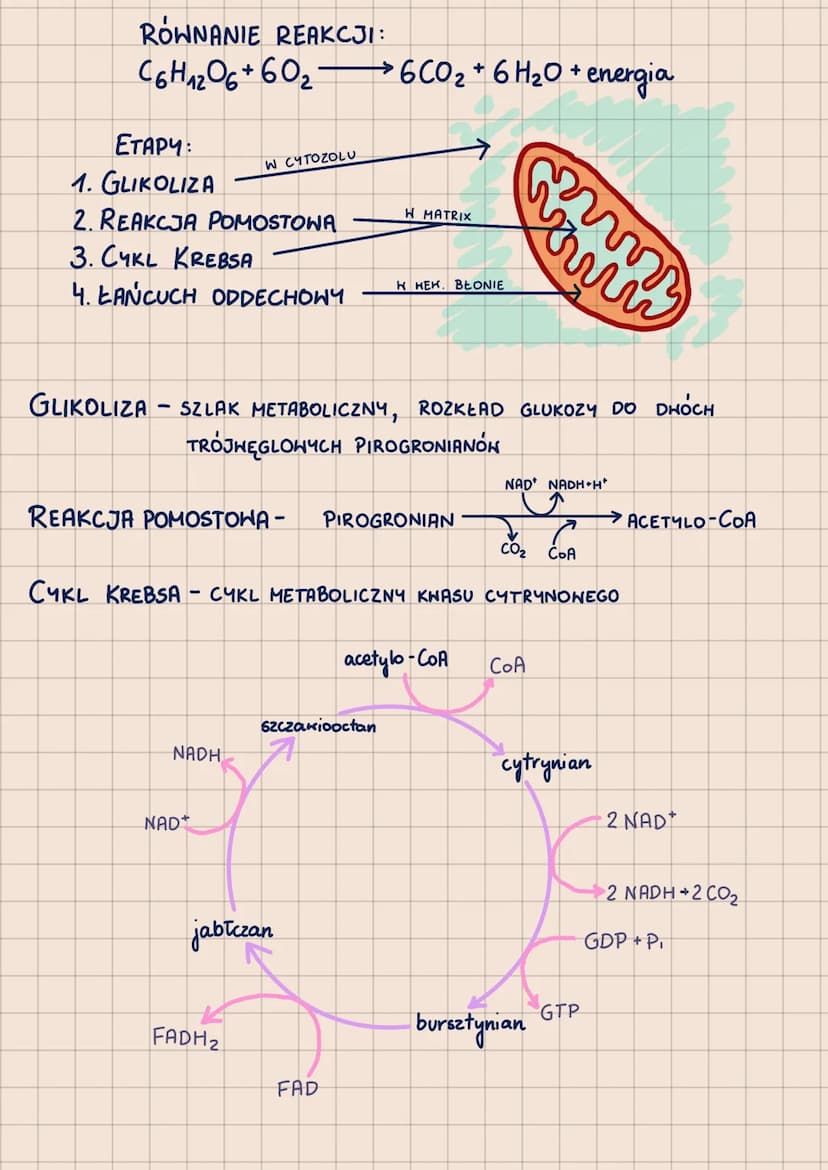 RÓWNANIE REAKCJI:
C₆H₁₂O₆ + 6O₂ → 6CO₂ + 6H₂O + energia
ETAPY:
1. GLIKOLIZA
W CYTOZOLU
2. REAKCJA POMOSTOWA
W MATRIX
3. CYKL KREBSA
4. ŁAŃCUCH ODDECHOWY
W WEW. BŁONIE
GLIKOLIZA – SZLAK METABOLICZNY, ROZKŁAD GLUKOZY DO DWÓCH
TRÓJWĘGLOWYCH PIROGRONIANÓW
NAD⁺ NADH+H⁺
REAKCJA POMOSTOWA – PIROGRONIAN → ACETYLO-CoA
CO₂ CoA
CYKL KREBSA – CYKL METABOLICZNY KWASU CYTRYNOWEGO
acetylo-CoA CoA
szczawiooctan
NADH
cytrynian
NAD⁺
2 NAD⁺
2 NADH + 2 CO₂
jabłczan
GDP + Pᵢ
GTP
bursztynian
FADH₂
FAD